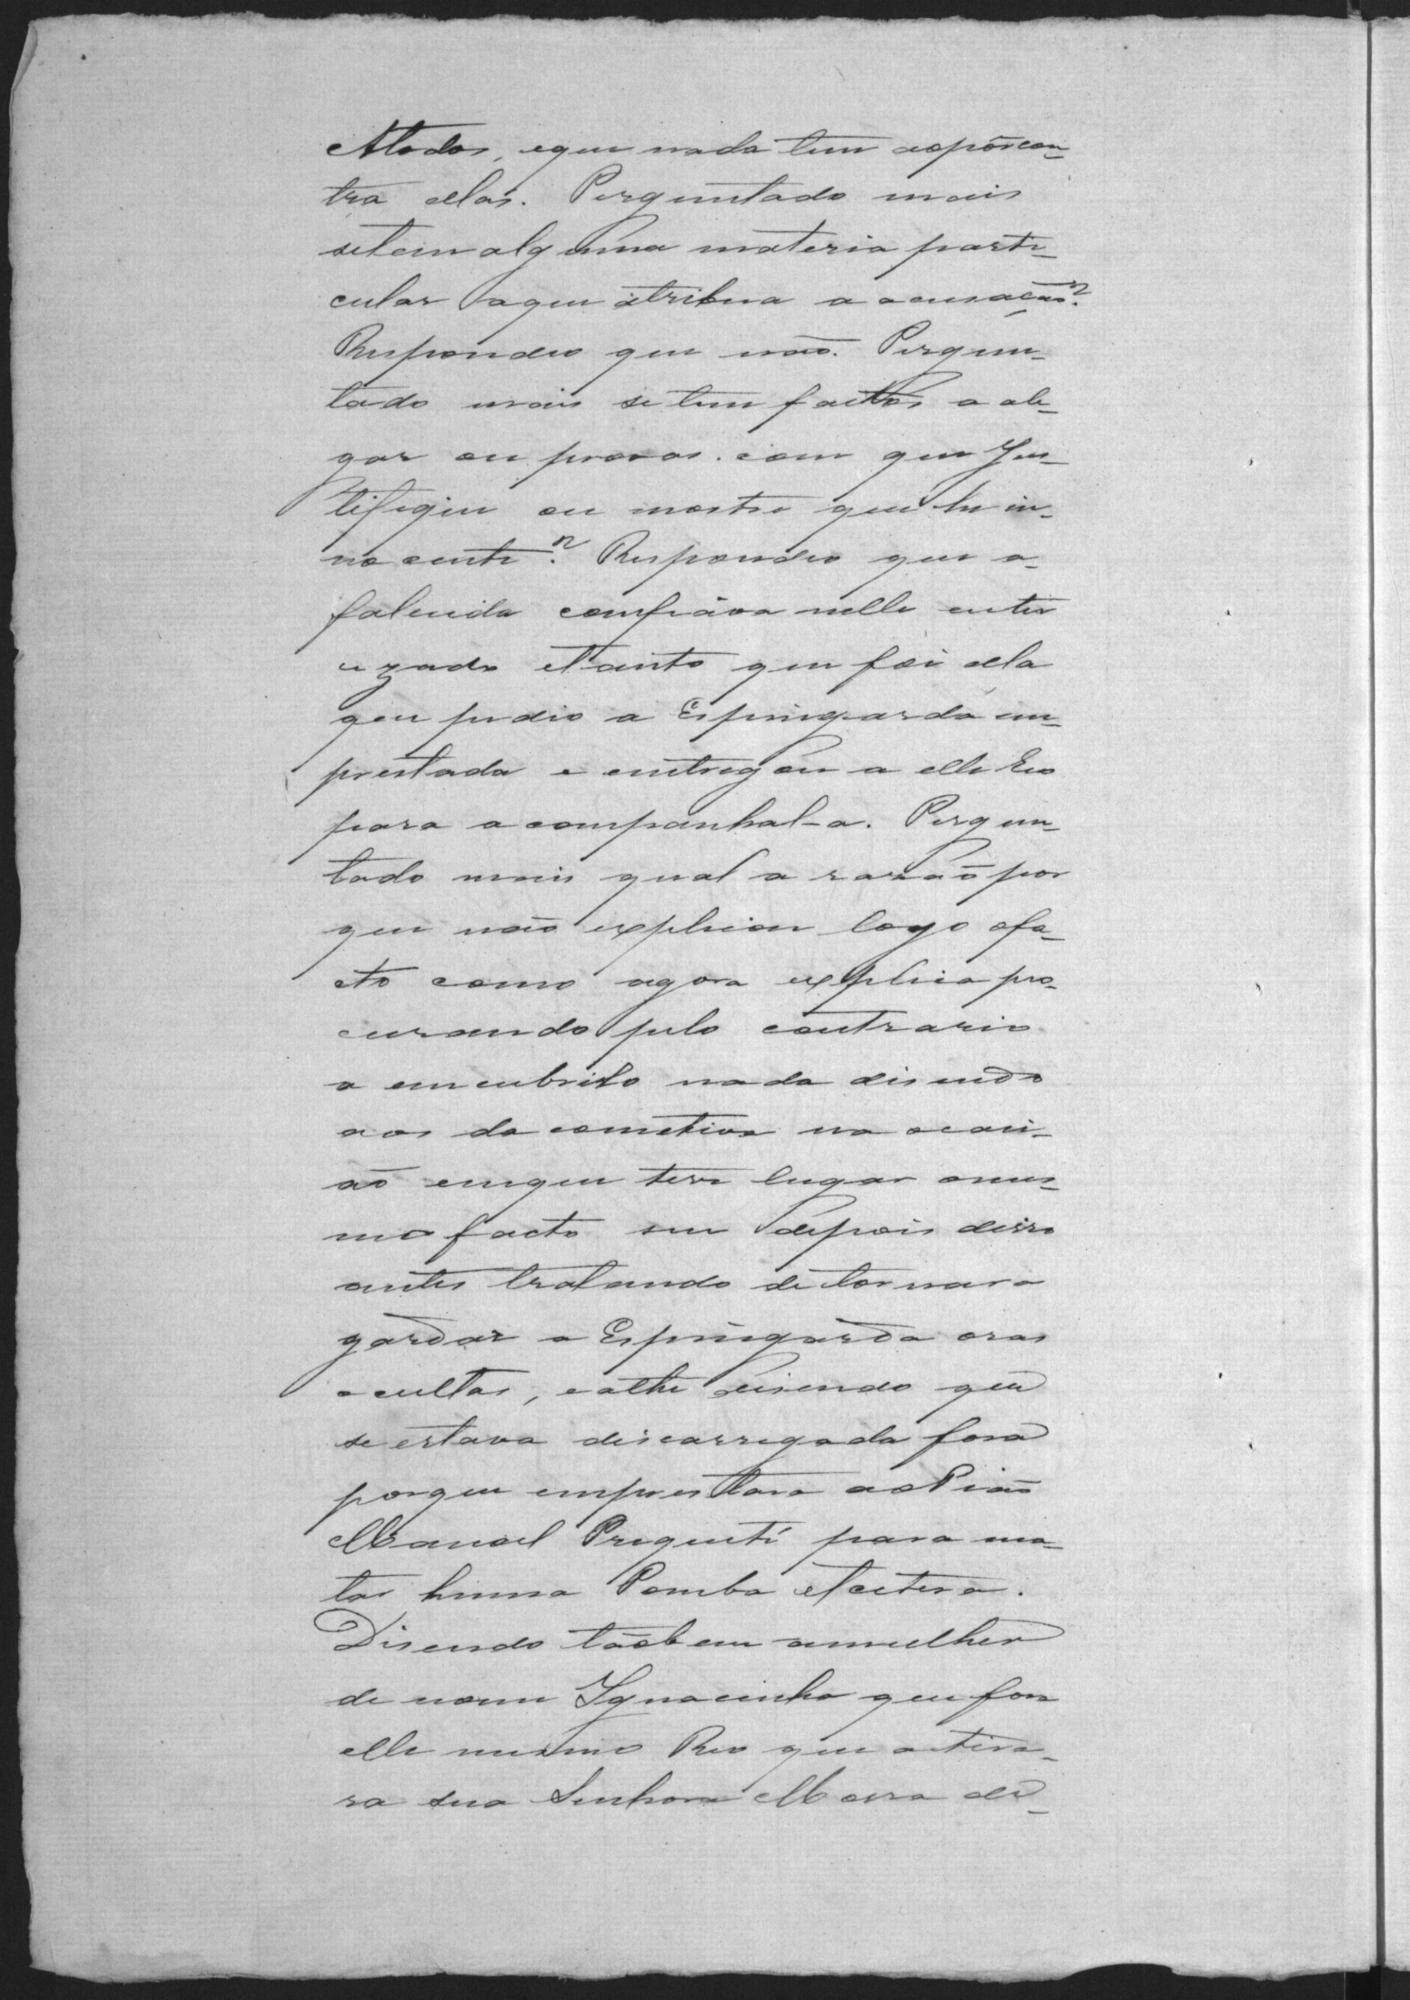 Atodos, eque nada tem aopôr con-
tra ellas. Perguntado mais
setem alguma materia parti-
cular aque atribua a acusação?
Respondeo que não. Pergun-
tado mais se tem factos a ale-
gar ou provas com que Jus-
tifique ou mostre que he in-
nocente? Respondeo que a
falecida confiava nelle
etanto que foi ella
que pedio a Espingarda em-
prestada e entregou a elle Reo
para acompanhal-a. Pergun-
tado mais qual a rasão por
que não explicou logo ofa-
cto como agora explica pro-
curando pelo contrario
a emcubrilo nada disendo
aos da cometiva na ocasi-
ão emque teve lugar omes-
mo facto nem depois disso
antes tratando de tornar a
gardar a Espingarda oras
ocultas, eathe disendo que
se estava discarregada fora
porque emprestara ao Pião
Manoel Prequeté para ma-
tar huma Pomba etcetera.
Disendo tãobem amulher
de nome Ignacinha que fora
elle mesmo Reo que atira-
ra sua Senhora Moça de-